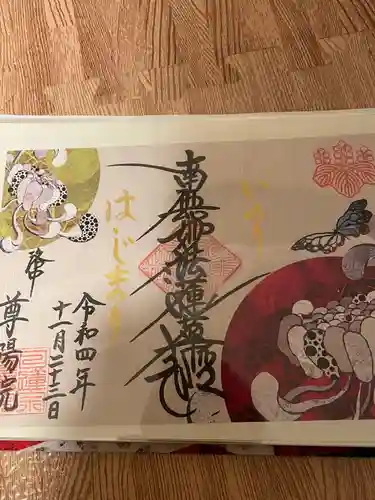 南無妙法蓮華経
はじまり
令和四年
十一月二十三日
尊陽院